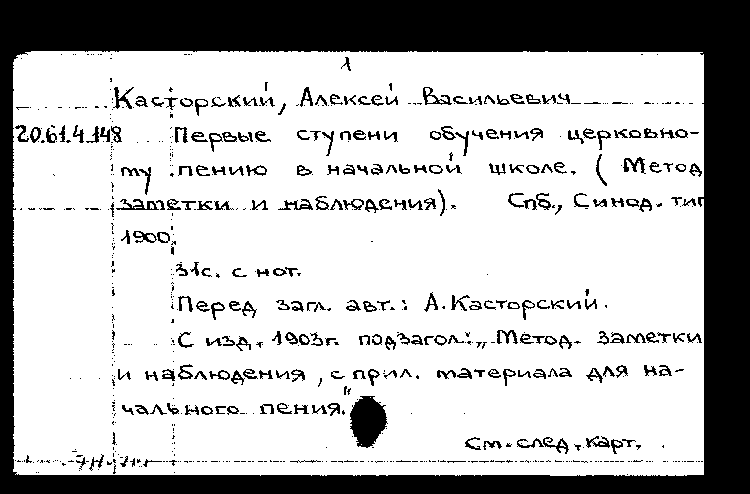 1
Касторский, Алексей Васильевич
20.61.4.148 Первые ступени обучения церковно-
му пению в начальной школе. (Метод
заметки и наблюдения). Спб., Синод. тип
1900.
31с. с нот.
Перед загл. авт.: А.Касторский.
С изд. 1903г. подзагол.: „Метод. заметки
и наблюдения, с прил. материала для на-
чального пения."
См. след. карт.